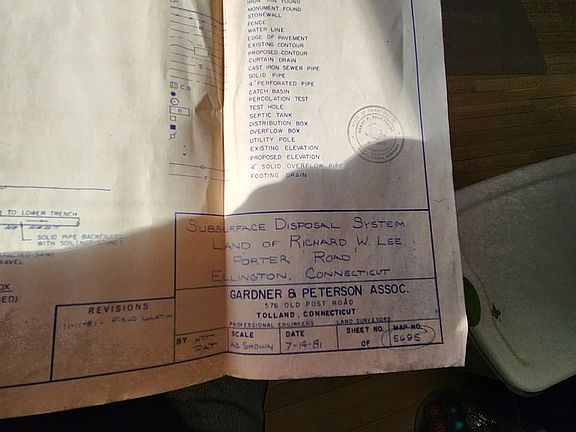 IRON PIN FOUND
MONUMENT FOUND
STONEWALL
FENCE
WATER LINE
EDGE OF PAVEMENT
EXISTING CONTOUR
PROPOSED CONTOUR
CURTAIN DRAIN
CAST IRON SEWER PIPE
SOLID PIPE
4" PERFORATED PIPE
CATCH BASIN
PERCOLATION TEST
TEST HOLE
SEPTIC TANK
DISTRIBUTION BOX
OVERFLOW BOX
UTILITY POLE
EXISTING ELEVATION
PROPOSED ELEVATION
4" SOLID OVERFLOW PIPE
FOOTING DRAIN
TO LOWER TRENCH
SOLID PIPE BACKFILLED
WITH SOIL (NOT STONE)
SUBSURFACE DISPOSAL SYSTEM
LAND OF RICHARD W. LEE
PORTER ROAD
ELLINGTON, CONNECTICUT
GARDNER & PETERSON ASSOC.
576 OLD POST ROAD
TOLLAND, CONNECTICUT
PROFESSIONAL ENGINEERS LAND SURVEYORS
REVISIONS
11-11-81 - FIELD LOCATION
BY
SCALE
AS SHOWN
DATE
7-14-81
SHEET NO.
OF
MAP NO.
5695